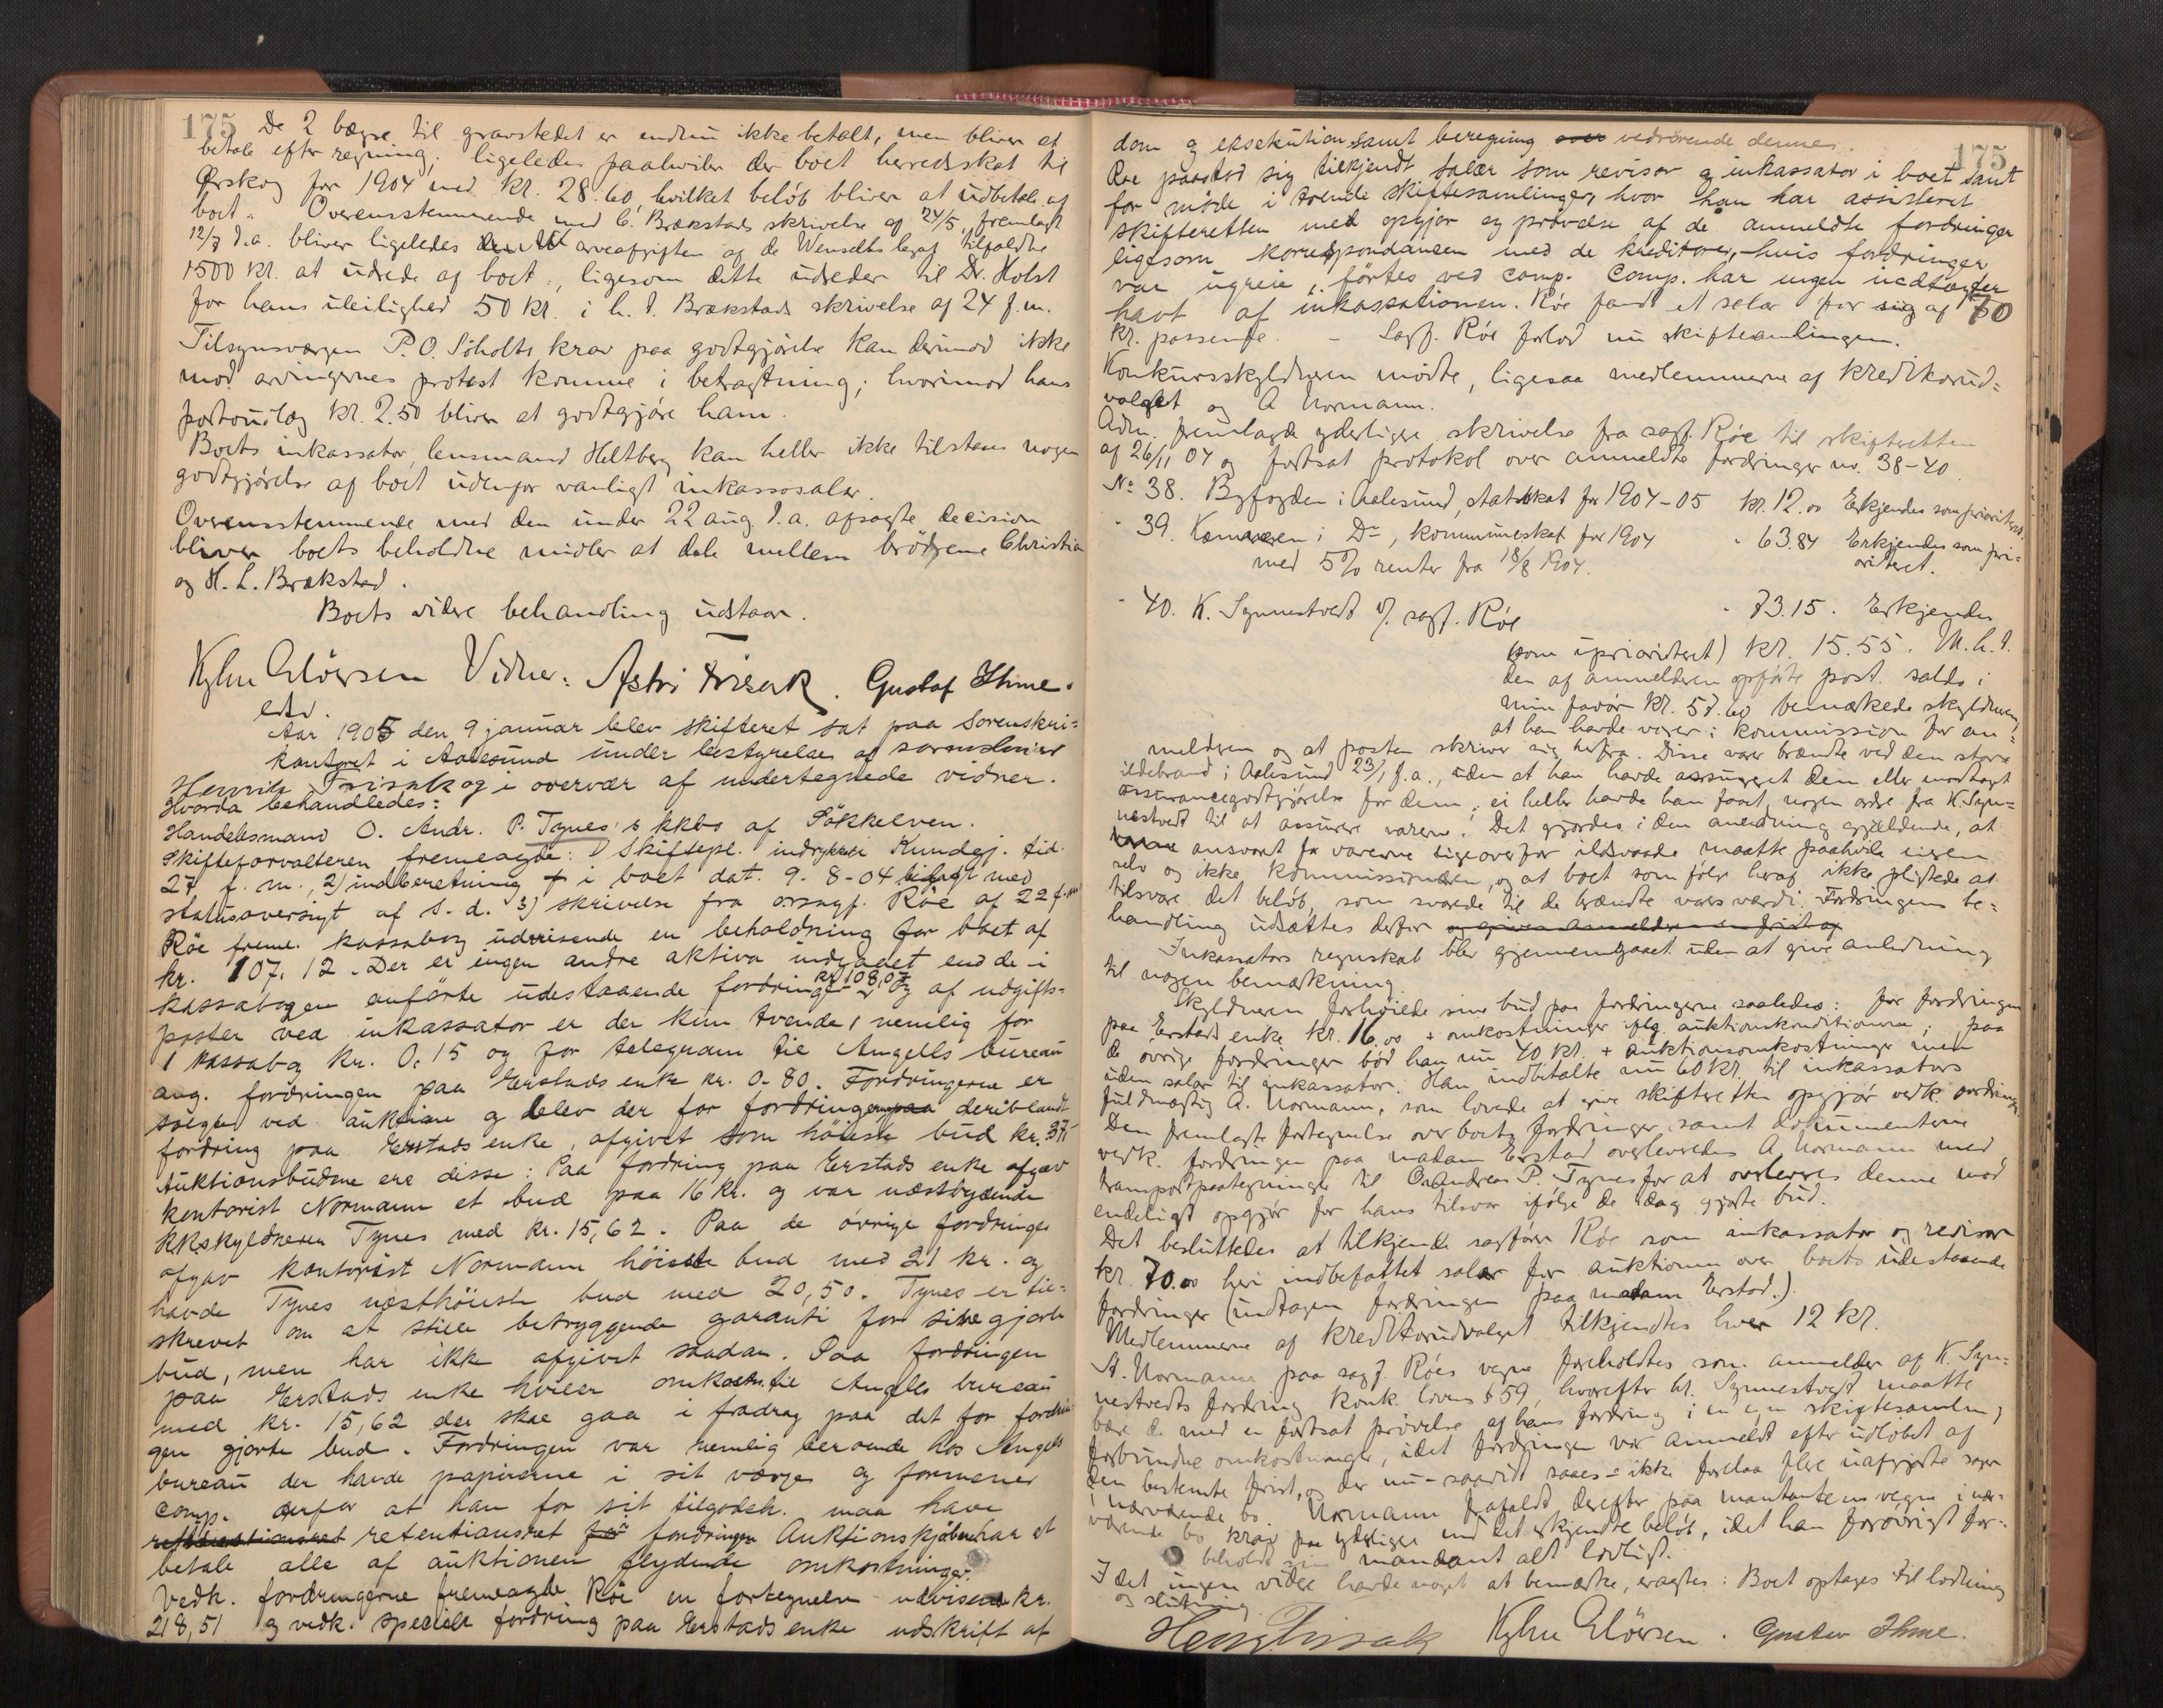 175
De 2 bægre til gravstedet er endnu ikke betalt, men bliver at
betale efter regning; ligeledes paahviler der boet herredsskat til
Ørskog for 1904 med kr. 28.60, hvilket beløb bliver at udbetale af
boet. Overensstemmende med C. Brækstads skrivelse af 24/5, fremlagt
12/7 d.a. bliver ligeledes arveafgiften af de Wenseths legat tilfaldte
1500 kr. at udrede af boet, ligesom dette udreder til Dr. Holst
for hans uleilighed 50 kr. i h. t. Brækstads skrivelse af 24 f.m.
Tilsynsværgen P. O. Søholts krav paa godtgjørelse kan derimod ikke
mod arvingernes protest komme i betragtning; hvorimod hans
portoudlæg kr. 2.50 bliver at godtgjøre ham.
Boets inkassator, lensmand Heltberg kan heller ikke tilstaaes nogen
godtgjørelse af boet udenfor vanligt inkassosalær.
Overensstemmende med den under 22 aug. d.a. afsagte decision
bliver boets beholdne midler at dele mellem brødrene Christian
og H. L. Brækstad.
Boets videre behandling udstaar.
Vidner: Astri Frisak. Gustaf Thime.
edv.
Aar 1905 den 9 januar blev skifteret sat paa Sorenskri-
kontoret i Aalesund under bestyrelse af sorenskriver
Henrik Frisak og i overvær af undertegnede vidner.
Hvorda behandledes:
Handelsmand O. Andr. P. Tynes's kkbo af Søkkelven.
Skifteforvalteren fremlagde: 1) Skiftepl. indrykket Kundgj. tid.
27 f. m., 2) indberetning i boet dat. 9-8-04 bilagt med
statusoversigt af s. d. 3) skrivelse fra orsagf. Röe af 22 f.m
Röe freml. kassabog udvisende en beholdning for boet af
kr. 107.12. Der er ingen andre aktiva indgaaet end de i
kassabogen anførte udestaaende fordringer kr. 108,07 og af udgifts-
poster ved inkassator er der kun tvende, nemlig for
1 kassabog kr. 0.15 og for telegram til Angells bureau
ang. fordringen paa Erstads enke kr. 0-80. Fordringerne er
solgte ved auktion og blev der for fordringerne deriblandt
fordring paa Erstads enke, afgivet som høieste bud kr. 37,-
Auktionsbudene ere disse: Paa fordring paa Erstads enke afgav
kontorist Normann et bud paa 16 kr. og var næstbydende
kkskyldneren Tynes med kr. 15,62. Paa de øvrige fordringer
afgav kontorist Normann høieste bud med 21 kr. og
havde Tynes næsthøieste bud med 20,50. Tynes er til-
skrevet om at stille betryggende garanti for sine gjorte
bud, men har ikke afgivet saadan. Paa fordringen
paa Erstads enke hviler omkostn. til Angells bureau
med kr. 15,62 der skal gaa i fradrag paa det for fordrin-
gen gjorte bud. Fordringen var nemlig beroende hos Angells
bureau der havde papirerne i sit værge og formener
comp. derfor at han for sit tilgodeh. maa have
retentionsret for fordringen Auktionskjøberen har at
betale alle af auktionen flydende omkostninger.
Vedk. fordringerne fremlagde Röe en fortegnelse udvisende kr.
218,51 og vedk. specielt fordring paa Erstads enke udskrift af
175
dom og eksekution samt beregning vedrørende dennes.
Röe paastod sig tilkjendt salær som revisor og inkassator i boet samt
for møde i tvende skiftesamlinger, hvor han har assisteret
skifteretten med opgjør og prøvelse af de anmeldte fordringer
ligesom korrespondancen med de kreditorer, hvis fordringer
var ugreie, førtes ved comp. Comp. har ingen indtægter
havt af inkassationen. Röe fandt et salær for sig af 70
kr. passende. – Sagf. Röe forlod nu skiftesamlingen.
Konkursskyldneren mødte, ligesaa medlemmerne af kreditorud-
valget og A Normann.
Adm. fremlagde yderligere skrivelse fra sagf. Röe til skifteretten
af 26/11 04 og fortsat protokol over anmeldte fordringer no. 38-40
No 38. Byfogden i Aalesund, statsskat for 1904-05 kr. 12.00 Erkjendes som prioriteret.
" 39. Kæmneren i Do, kommuneskat for 1904 " 63.84 Erkjendes som pri-
med 5% renter fra 18/8 1904. oriteret.
" 40. K. Synnestvedt v/ sagf. Röe " 73.15. Erkjendes
(som uprioriteret) kr. 15.55. M. h. t.
den af anmelderen opførte post: saldo i
min favør kr. 57.60 bemærkede skyldneren,
at han havde varer i kommission for an-
melderen og at posten skriver sig herfra. Disse varer brændte ved den store
ildebrand i Aalesund 23/1 f.a., uden at han havde assureret dem eller modtaget
assurancegodtgjørelse for dem; ei heller havde han faaet nogen ordre fra K. Syn-
nestvedt til at assurere varerne. Det gjordes i den anledning gjældende, at
ansvaret for varerne ligeoverfor ildsvaade maatte paahvile eieren
selv og ikke kommissionæren, og at boet som følge heraf ikke pligtede at
tilsvare det beløb, som svarede til de brændte varers værdi. Fordringens be-
handling udsættes derfor og gives anmelderen en frist og
Inkassators regnskab blev gjennemgaaet uden at give anledning
til nogen bemærkning.
Skyldneren forhøiede sine bud paa fordringerne saaledes: for fordringen
paa Erstads enke kr. 16.00 + omkostninger iflg. auktionskonditionerne; paa
de øvrige fordringer bød han nu 40 kr. + auktionsomkostninger men
uden salær til inkassator. Han indbetalte nu 60 kr. til inkassators
fuldmægtig A. Normann, som lovede at give skifteretten opgjør vedk. fordringer.
Den fremlagte fortegnelse over boets fordringer samt dokumenterne
vedk. fordringen paa madam Erstad overleveredes A Normann med
transportpaategninger til O. Andreas P. Tynes for at overleveres denne mod
endeligt opgjør for hans tilsvar ifølge de idag gjorte bud.
Det besluttedes at tilkjende sagfører Röe som inkassator og revisor
kr. 70.00 heri indbefattet salær for auktionen over boets udestaaende
fordringer (undtagen fordringen paa madam Erstad.).
Medlemmerne af kreditorudvalget tilkjendtes hver 12 kr.
A. Normann paa sagf. Röes vegne foreholdtes som anmelder af K. Syn-
nestvedts fordring konk. lovens § 59, hvorefter hr. Synnestvedt maatte
bære de med en fortsat prøvelse af hans fordring i en egen skiftesamling
forbundne omkostninger, idet fordringen var anmeldt efter udløbet af
den bestemte frist, og der nu - saavidt saaes - ikke forelaa flere uafgjorte sager
i nærværende bo. Normann frafaldt derefter paa mandantens vegne i nær-
værende bo krav paa yderligere end det erkjendte beløb, idet han forøvrigt for-
beholdt sin mandant alt lovligt.
Idet ingen videre havde noget at bemærke, eragtes: Boet optages til lodning
og slutning.
Henr. Frisak Gustav Thime.